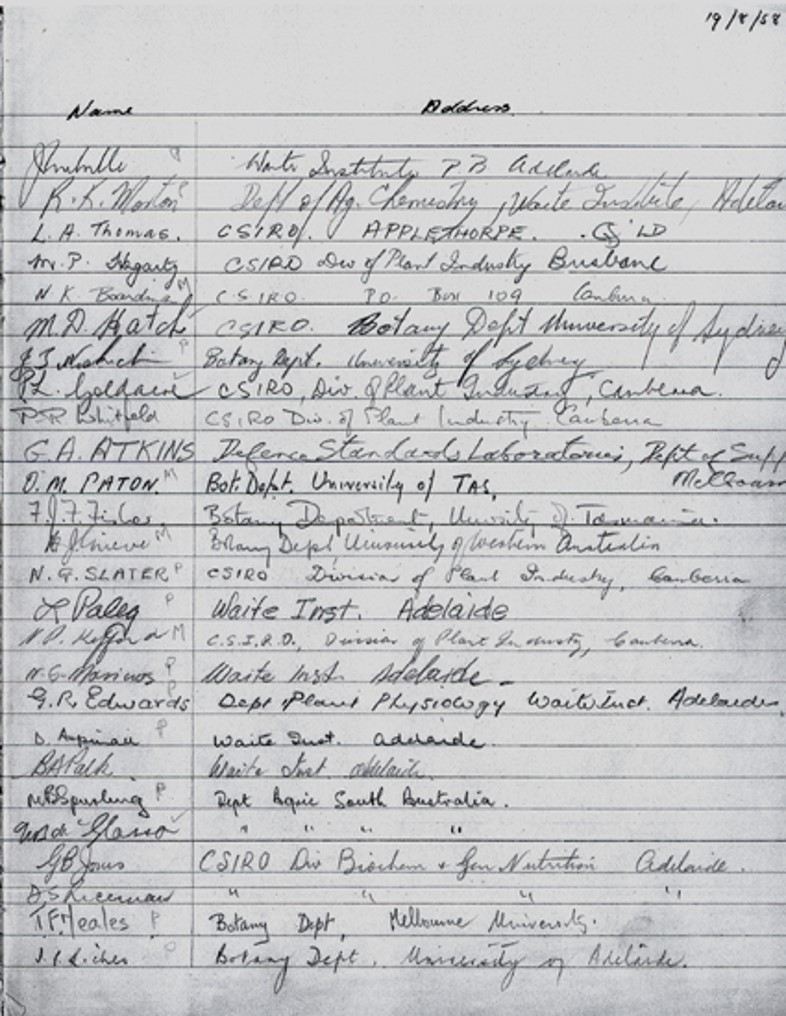 19/8/58
Name Address
Waite Institute P.B Adelaide
R. K. Morton Dept of Ag. Chemistry, Waite Institute, Adelai
L. A. Thomas. CSIRO. APPLETHORPE. Q'LD
Mr. P. Hagarty CSIRO Div of Plant Industry Brisbane
N. K. Boardman M C.S.I.R.O. P.O. Box 109 Canberra
M. D. Hatch CSIRO. Botany Dept University of Sydney
Botany Dept. University of Sydney
P.L. Goldacre CSIRO, Div. of Plant Industry, Canberra.
P.R. Whitfeld CSIRO Div. of Plant Industry Canberra
G. A. ATKINS Defence Standards Laboratories, Dept of Supp
O. M. PATON. M Bot. Dept. University of TAS.
F.J.F. Fisher, Botany Department, University of Tasmania.
Grieve M Botany Dept University of Western Australia
N. G. SLATER P CSIRO Division of Plant Industry, Canberra
L Paleg P Waite Inst. Adelaide
M C.S.I.R.O., Division of Plant Industry, Canberra.
N. G. Marinos P Waite Inst. Adelaide
G. R. Edwards P Dept Plant Physiology Waite Inst. Adelaide.
D. Aspinall P Waite Inst. Adelaide.
Waite Inst Adelaide.
P Dept Agric South Australia.
" " " "
G B Jones CSIRO Div Biochem & Gen Nutrition Adelaide.
" " " "
T.F. Neales P Botany Dept, Melbourne University.
P Botany Dept. University of Adelaide.